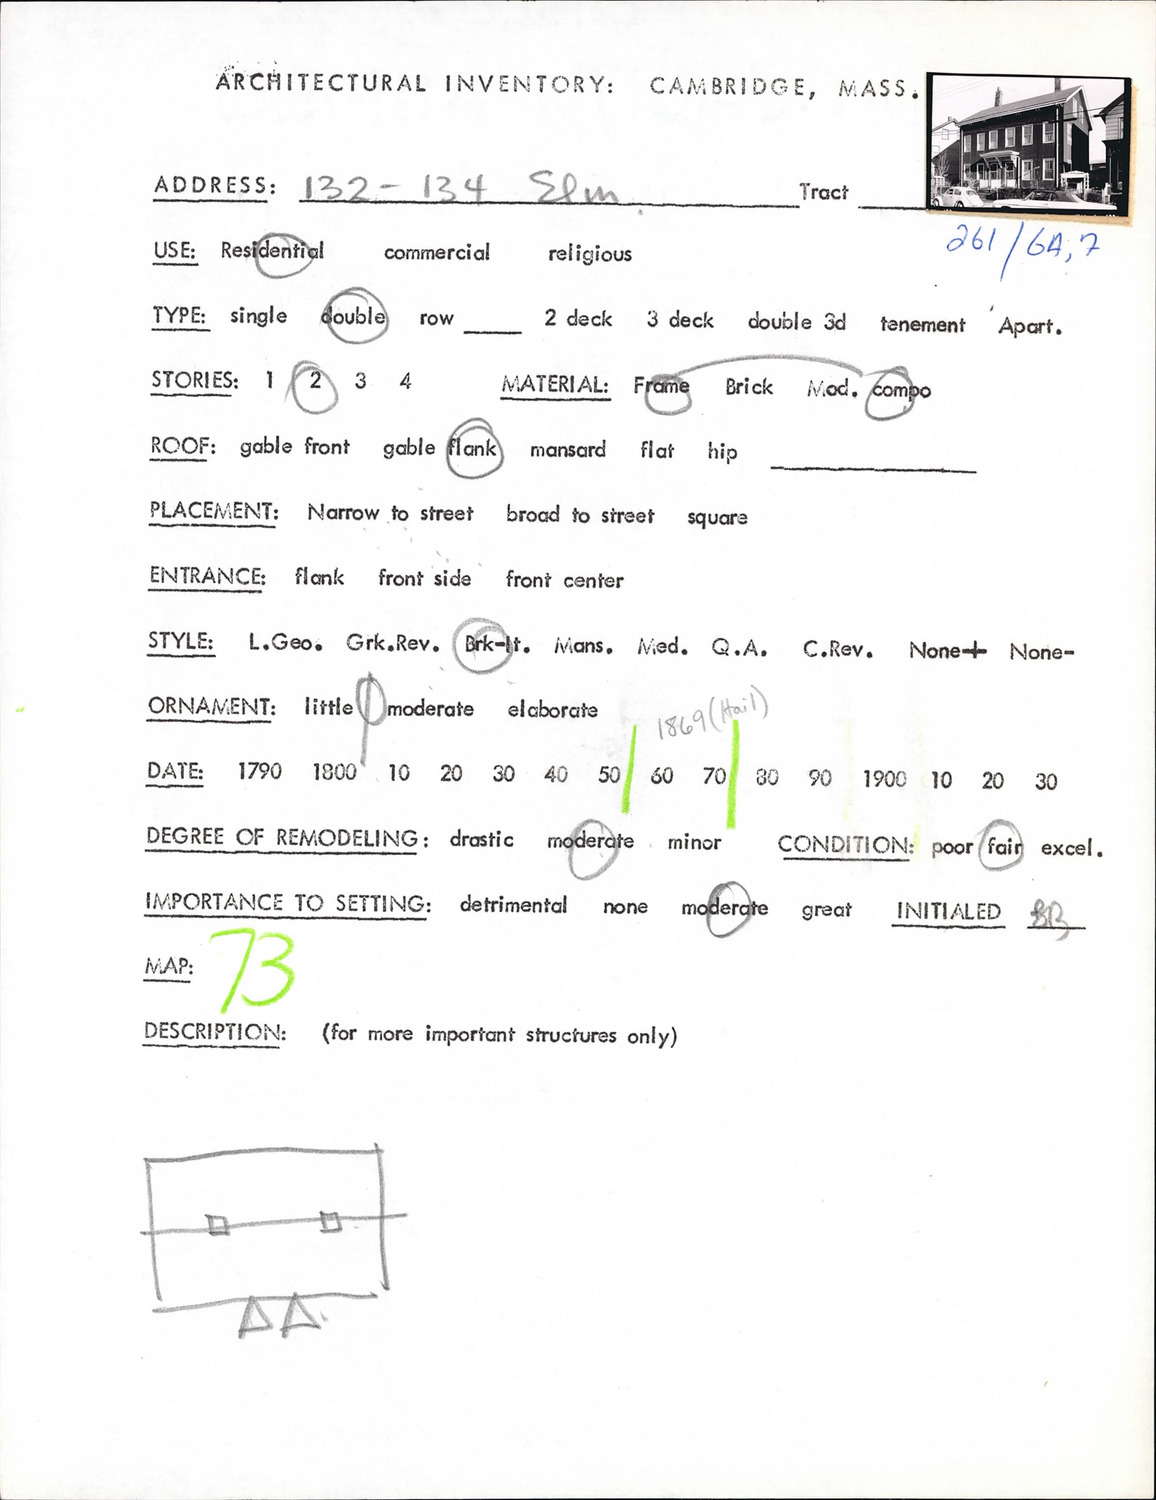 ARCHITECTURAL INVENTORY: CAMBRIDGE, MASS.
ADDRESS: 132-134 Elm Tract
261/6A,7
USE: Residential commercial religious
TYPE: single double row ____ 2 deck 3 deck double 3d tenement Apart.
STORIES: 1 2 3 4 MATERIAL: Frame Brick Mod. compo
ROOF: gable front gable flank mansard flat hip
PLACEMENT: Narrow to street broad to street square
ENTRANCE: flank front side front center
STYLE: L.Geo. Grk.Rev. Brk-It. Mans. Med. Q.A. C.Rev. None+ None-
ORNAMENT: little moderate elaborate
1869 (Hail)
DATE: 1790 1800 10 20 30 40 50 60 70 80 90 1900 10 20 30
DEGREE OF REMODELING: drastic moderate minor CONDITION: poor fair excel.
IMPORTANCE TO SETTING: detrimental none moderate great INITIALED BB
MAP: 73
DESCRIPTION: (for more important structures only)